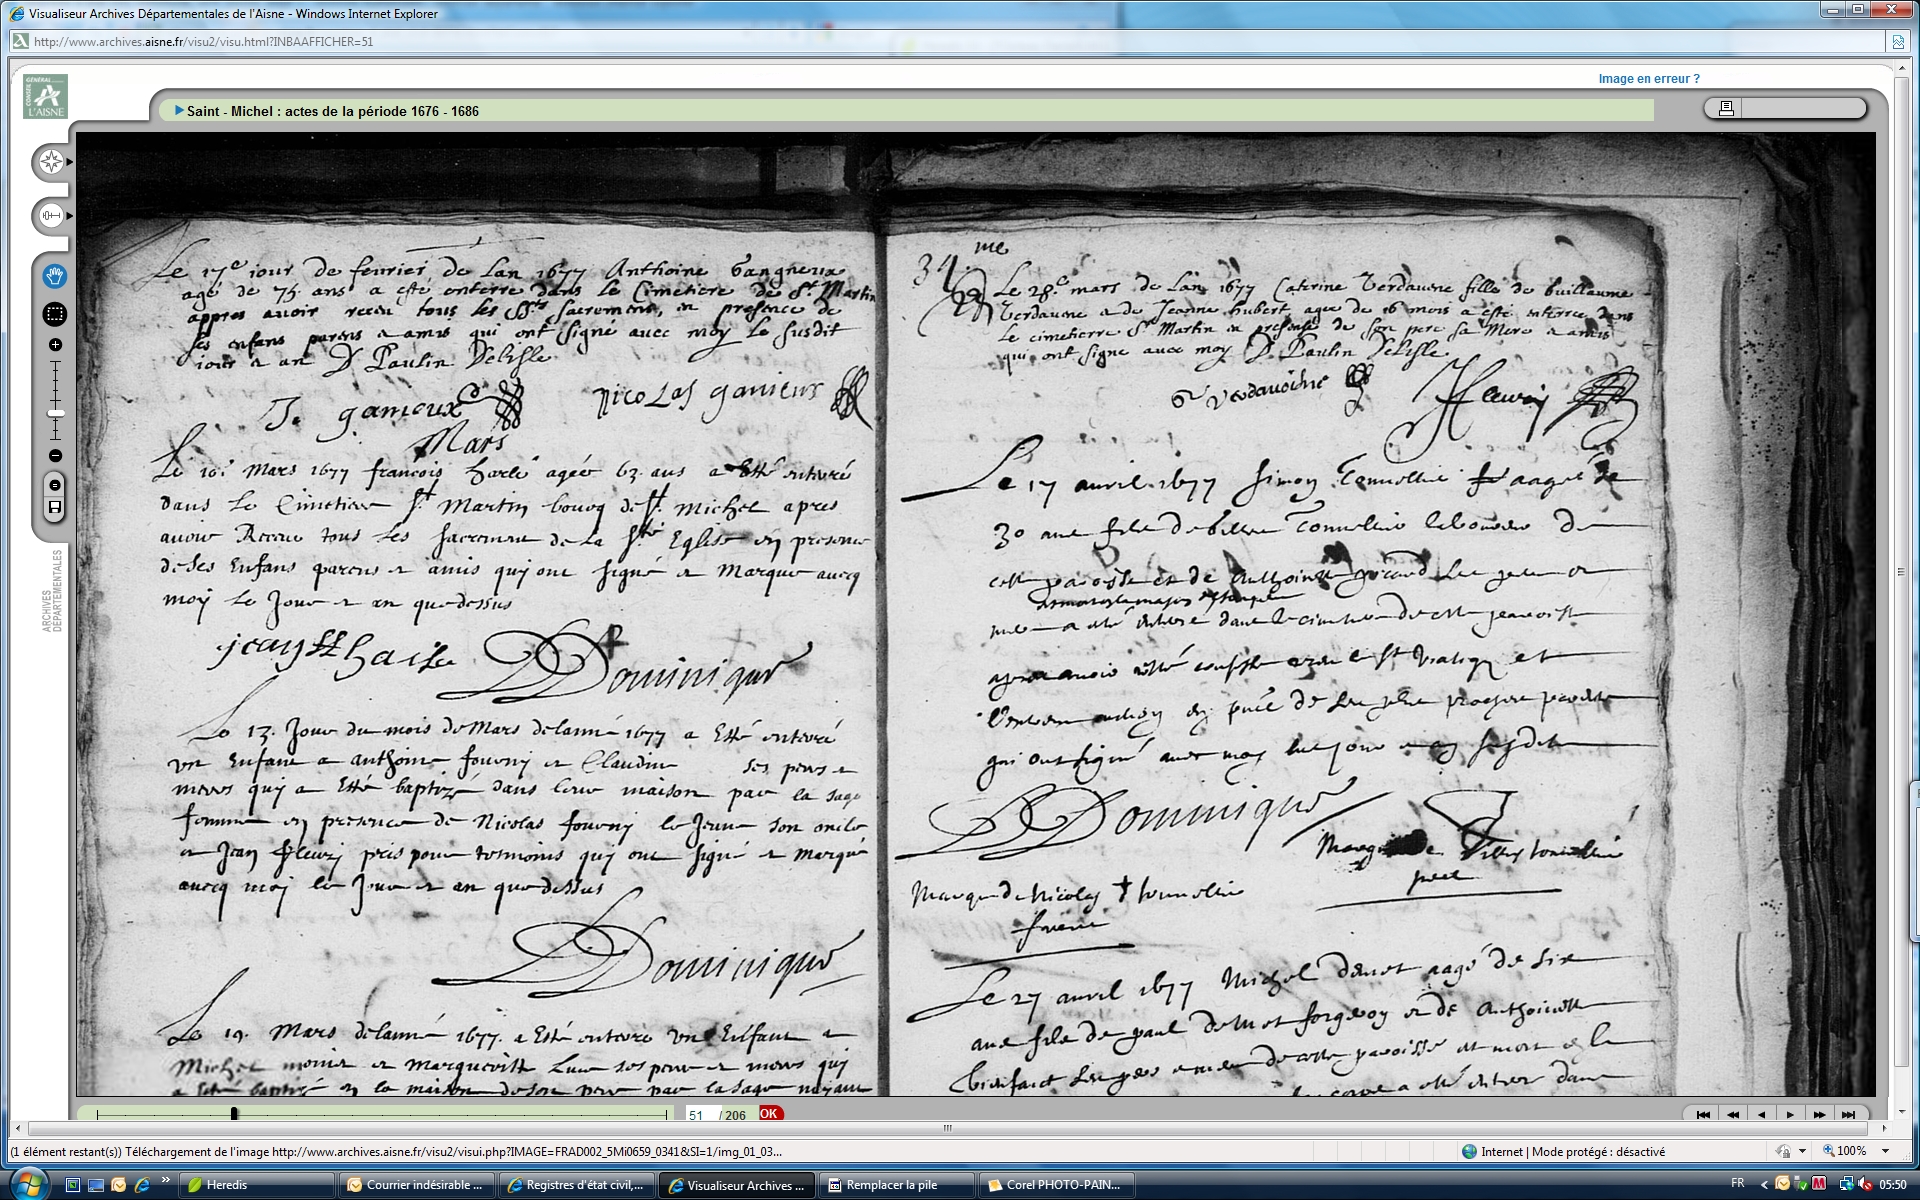 Visualiseur Archives Départementales de l'Aisne - Windows Internet Explorer
http://www.archives.aisne.fr/visu2/visu.html?INBAAFFICHER=51
Image en erreur ?
CONSEIL GÉNÉRAL
L'AISNE
Saint - Michel : actes de la période 1676 - 1686
ARCHIVES DÉPARTEMENTALES
Le 17e iour de feurier de Lan 1677 Anthoine Gangneux
agé de 75 ans a esté enterre dans le Cimetiere de St Martin
appres auoir receu tous les Sts Sacremens, en presence de
ses enfans parens & amis qui ont signe auec moy le susdit
iour & an D Paulin Delisle
J. ganieux
nicolas ganieus
Mars
Le 10e Mars 1677 francois harle agée 63 ans a Esté enterré
dans le Cimetiere St Martin bourg de St Michel apres
auoir Receu tous les sacremens de la Ste Eglise en presence
de ses Enfans parens et amis qui ont signé et Marqué avecq
moy le Jour et an que dessus
jean harle
Dominique
Le 13. Jour du mois de Mars de lanné 1677 a Esté enterré
un Enfant a anthoine fourny et Claudine ses peres et
meres quy a Esté baptizé dans leur maison par la sage
femme en presence de Nicolas fourny le Jeune son oncle
et Jean fleury pris pour tesmoins quy ont signé et marqué
avecq moy le Jour et an que dessus
Dominique
Le 19. Mars de lanné 1677. a Esté enterré un Enfant a
Michel et Margueritte ses pere et meres qui
a Esté baptizé en la maison de son pere par la sage
34 me
Le 28e mars de Lan 1677 Caterine Verdauene fille de Guillaume
Verdauene & de Jeanne hubert agee de 16 mois a esté enterrée dans
Le cimetierre St Martin en presence de son pere sa Mere & amis
qui ont signe auec moy D. Paulin Delisle
G Verdauoine
Fleury
Le 17 avril 1677 Simon Tonnellie aagé de
30 ans fils de Tonnellie laboureur de
cette paroisse et de Anthoinette girard ses pere et
mere a esté enterré dans le cimetiere de cette paroisse
apres avoir esté confessé le St Viatiq et
en de ses plus proches parents
qui ont signé avec moy les jour et an susdits
Dominique
Marque de tonnellie
pere
Marque de Nicolas tonnellie
frere
Le 27 avril 1677 Michel aagé de six
ans fils de paul forgeron et de Anthoinette
ses pere et mere de cette paroisse est mort et
a esté enterré dans
51 / 206 OK
(1 élément restant(s)) Téléchargement de l'image http://www.archives.aisne.fr/visu2/visui.php?IMAGE=FRAD002_5Mi0659_0341&SI=1/img_01_03...
Internet | Mode protégé : désactivé
100%
Heredis
Courrier indésirable ...
Registres d'état civil,...
Visualiseur Archives ...
Remplacer la pile
Corel PHOTO-PAIN...
FR
05:50